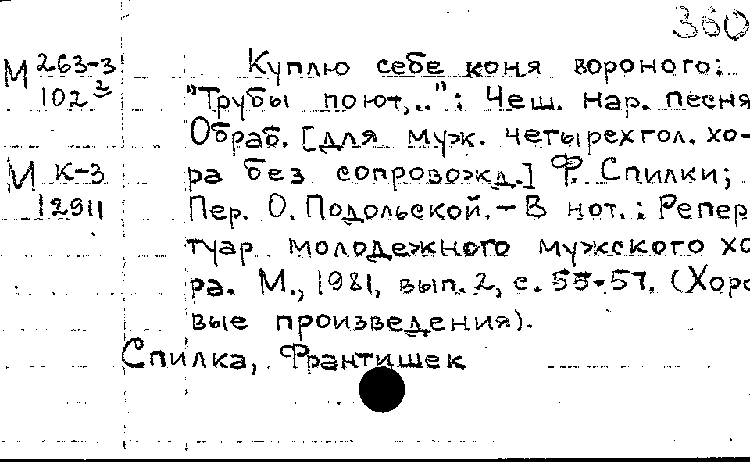 360
М 263-3
102 2
Куплю себе коня вороного:
"Трубы поют,..": Чеш. нар. песня
Обраб. [для муж. четырехгол. хо-
М К-3
ра без сопровожд.] Ф. Спилки;
12911
Пер. О. Подольской. - В нот.: Репер
туар молодежного мужского хо
ра. М., 1981, вып. 2, с. 55-57. (Хоро
вые произведения).
Спилка, Франтишек